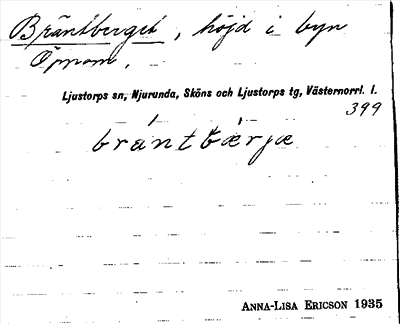 Bräntberget, höjd i byn
Öppom.
Ljustorps sn, Njurunda, Sköns och Ljustorps tg, Västernorrl. l.
399
brántbæ̀rjæ
ANNA-LISA ERICSON 1935